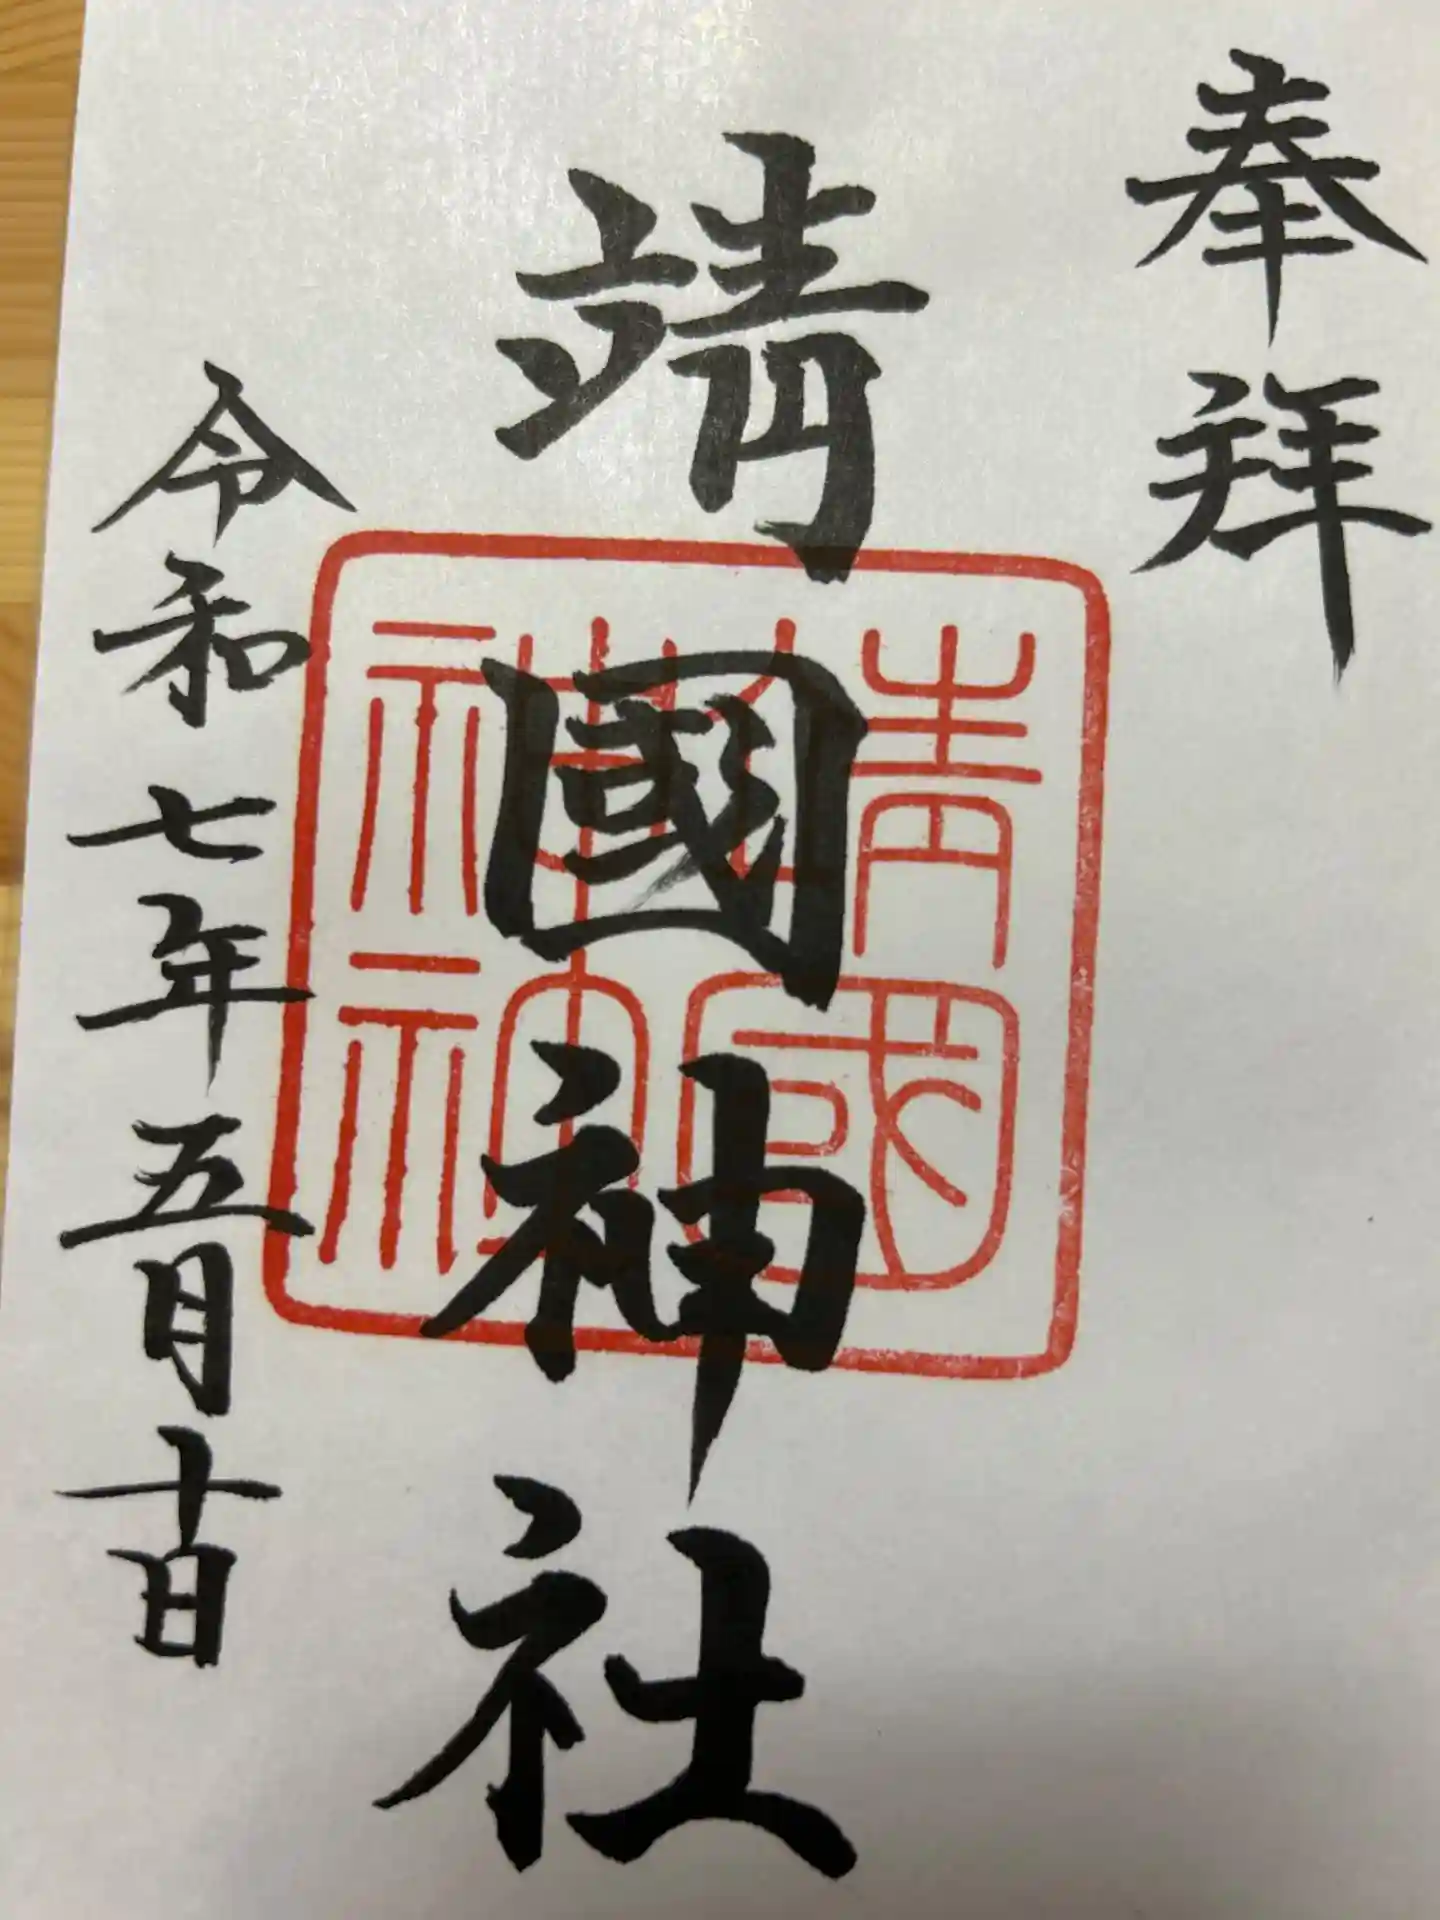 奉拝
靖國神社
靖國
神社
令和七年五月十日